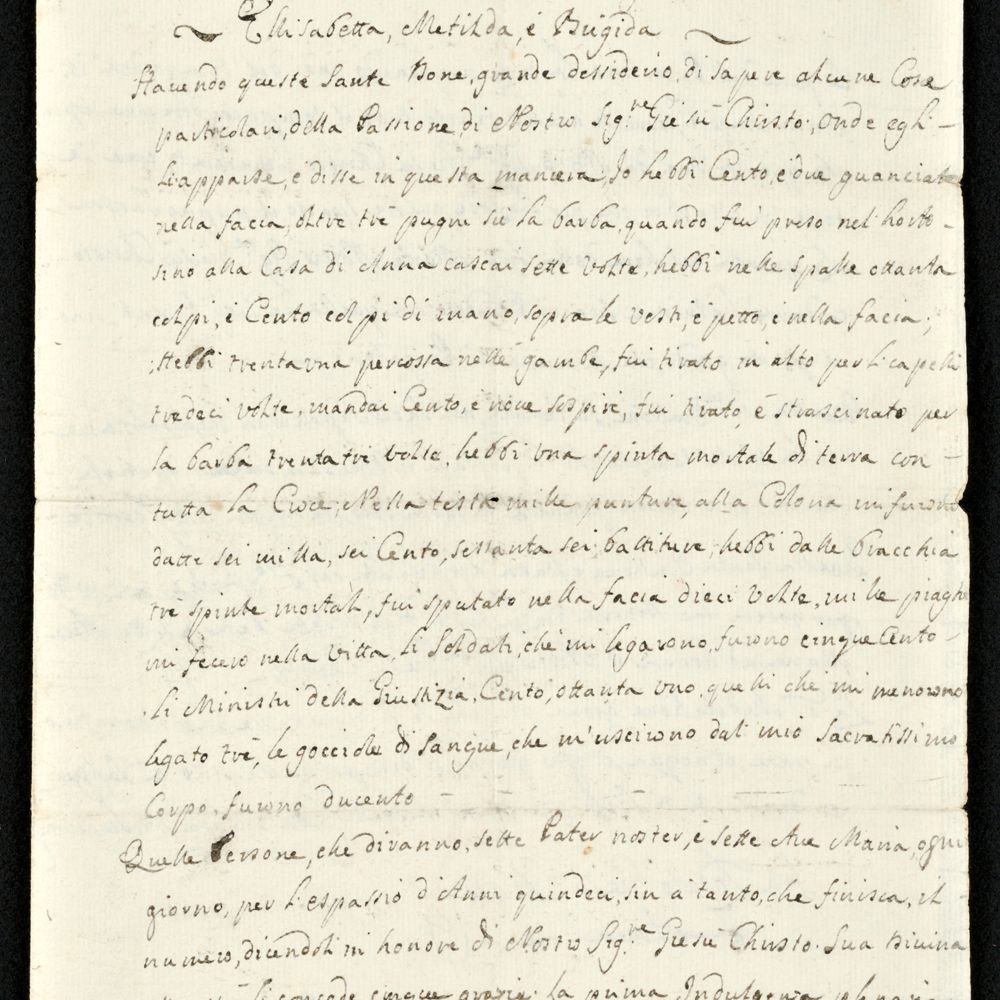 ~ Ellisabetta, Metilda, è Brigida ~
Havendo queste Sante Done, grande dessiderio, di sapere alcune Cose
particolari, della Passione, di Nostro Sig.re Giesù Christo, onde egli -
li apparse, è disse in questa maniera, Io hebbi Cento, è due guanciate
nella facia, oltre trè pugni sù la barba, quando fui preso nel horto -
sino alla Casa di Anna cascai sette volte, hebbi nelle spalle ottanta
colpi, è Cento colpi di mano, sopra le vesti, è petto, è nella facia;
Hebbi trenta una percossa nelle gambe, fui tirato in alto per li capelli
tredeci volte, mandai Cento, è nove sospiri, fui tirato, è strascinato per
la barba trenta tre volte, hebbi una spinta mortale di terra con -
tutta la Croce, Nella testa mille punture, alla Colona mi furono
datte sei milla, sei Cento, sessanta sei, battiture, hebbi dalle bracchia
tre spinte mortali, fui sputato nella facia dieci volte, mille piaghe
mi fecero nella vitta, li Soldati, che mi legarono, furono cinque Cento -
Li Ministri della Giustizia, Cento, ottanta uno, quelli che mi menorono
legato trè, le gocciole di Sangue, che m'uscirono dal mio Sacratissimo
Corpo, furono ducento -
Quelle Persone, che diranno, sette Pater noster, è sette Ave Maria, ogni
giorno, per l'espassio d'Anni quindeci, sin à tanto, che finisca, il -
numero, dicendoli in honore di Nostro Sig.re Giesù Christo. Sua Divina
li concede cinque grazie. La prima Indulgenza